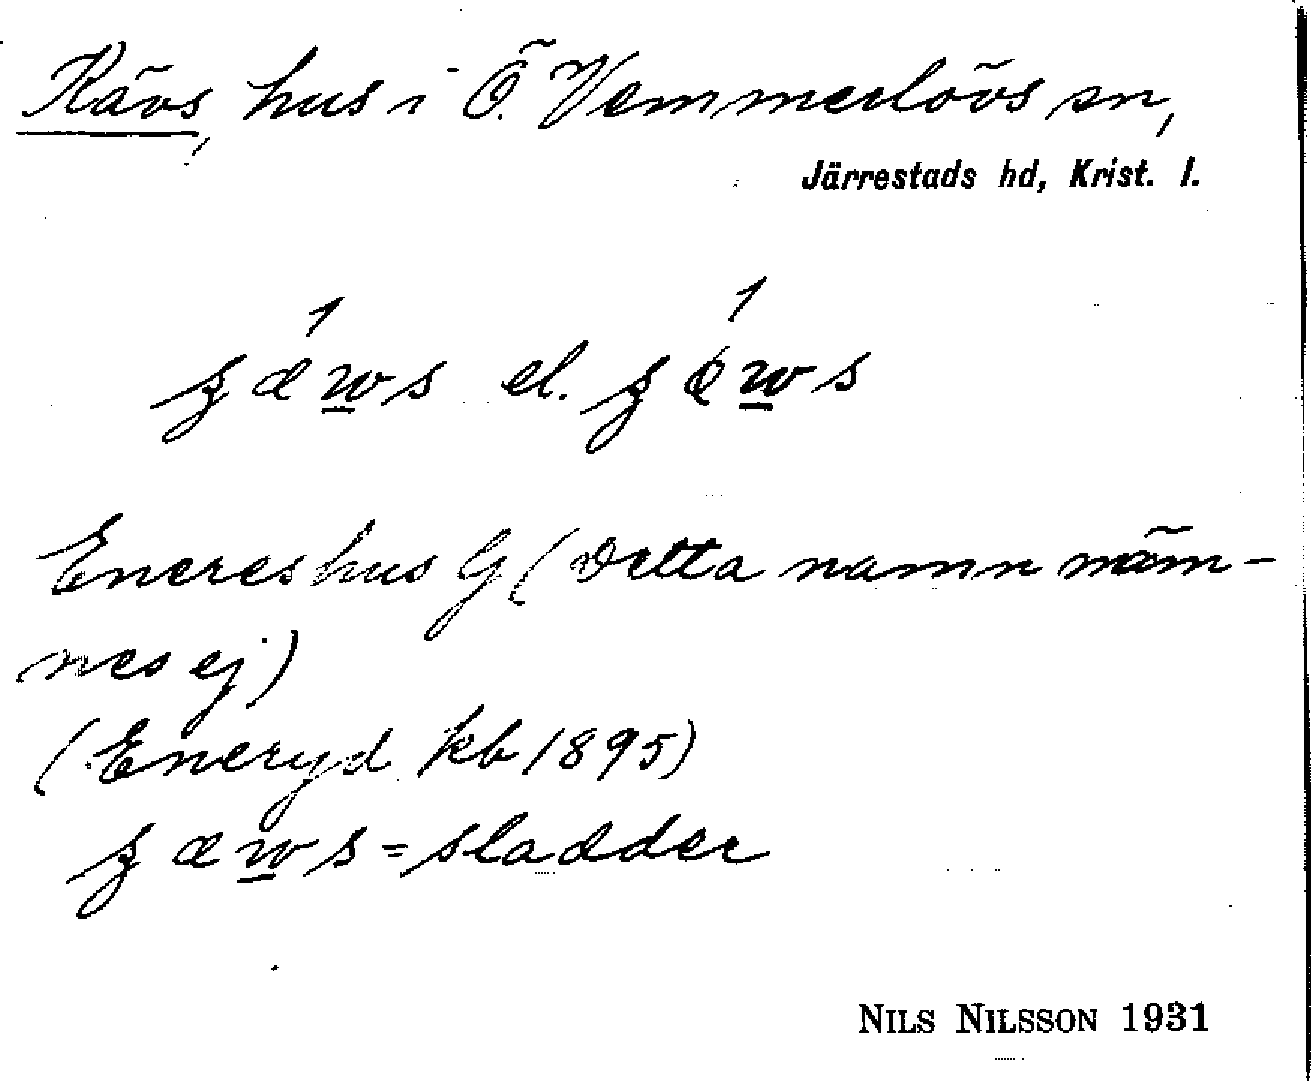 Kävs, hus i Ö. Vemmerlövs sn,
Järrestads hd, Krist. l.
ʒæw̲s el. ʒǿw̲s
Enereshus G (Detta namn näm-
nes ej)
(Eneryd kb 1895)
ʒæw̲s = sladder
NILS NILSSON 1931